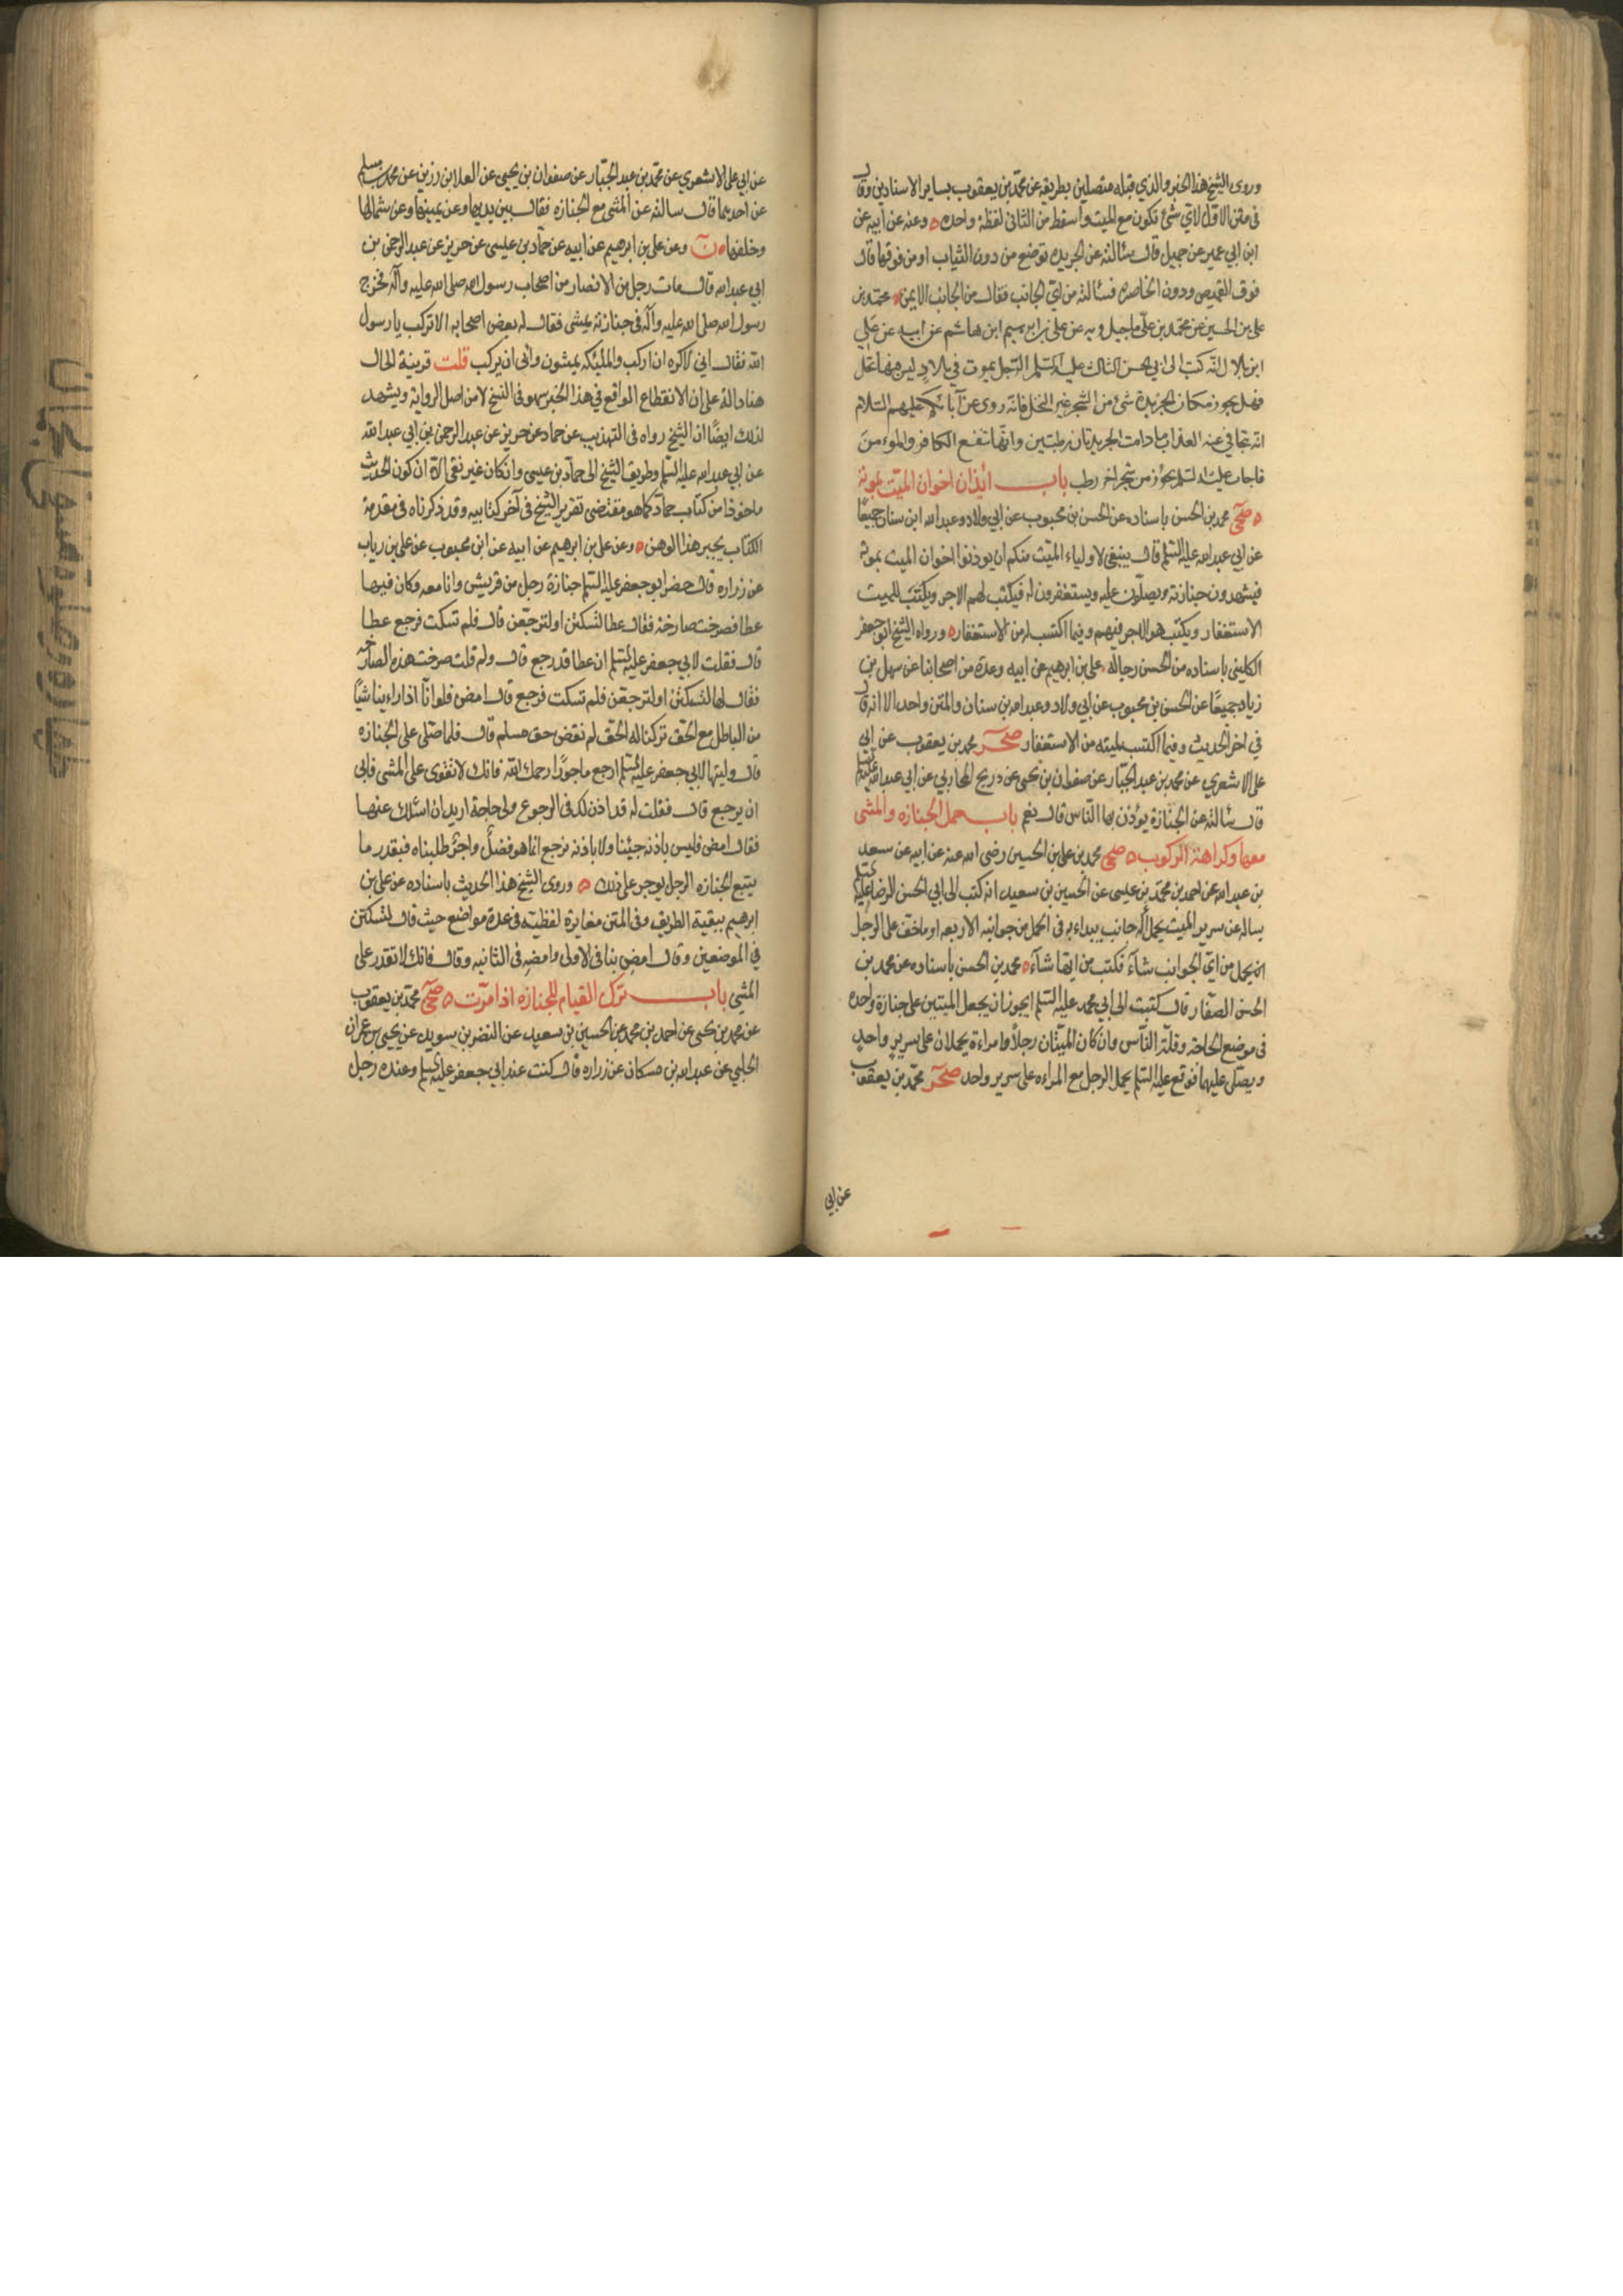 وروى الشيخ هذا الخبر والذي قبله متصلين بطريقه عن محمد بن يعقوب بساير الاسنادين وقال
في متن الاول لاي شئ تكون مع الميت واسقط من الثاني لفظة واحده ٥ وعنه عن ابيه عن
ابن ابي عمير عن جميل قال سئالته عن الجريده توضع من دون الثياب او من فوقها قال
فوق القميص ودون الخاصره فسئالته من اي الجانب فقال من الجانب الايمن ٥ محمد بن
علي بن الحسين عن محمد بن علي ماجيلويه عن علي بن ابرهيم ابن هاشم عن ابيه عن علي
ابن بلال انه كتب الى ابي الحسن الثالث عليه السلم الرجل يموت في بلاد ليس فيها نخل
فهل يجوز مكان الجريدة شئ من الشجر غير النخل فانه روى عن آبائكم عليهم السلام
انه يتجافى عنه العذاب مادامت الجريدتان رطبتين وانها تنفع الكافر والموءمن
فاجاب عليه السلم يجوز من شجر اخر رطب باب ايذان اخوان الميت بموته
٥ صحي محمد بن الحسن باسناده عن الحسن بن محبوب عن ابي ولاد وعبد الله ابن سنان جميعًا
عن ابي عبد الله عليه السلم قال ينبغي لاولياء الميت منكم ان يوذنوا اخوان الميت بموته
فيشهدون جنازته ويصلون عليه ويستغفرون له فيكتب لهم الاجر ويكتب للميت
الاستغفار ويكتب هو الاجر فيهم وفيما اكتسب له من الاستغفار ٥ ورواه الشيخ ابو جعفر
الكليني باسناده من الحسن رجاله علي بن ابرهيم عن ابيه وعدة من اصحابنا عن سهل بن
زياد جميعًا عن الحسن بن محبوب عن ابي ولاد وعبد الله بن سنان والمتن واحد الا انه قال
في اخر الحديث وفيما اكتسب لميته من الاستغفار صحر محمد بن يعقوب عن ابي
علي الاشعري عن محمد بن عبد الجبار عن صفوان بن يحيى عن ذريح المحاربي عن ابي عبد الله عليه السلم
قال سئالته عن الجنازة يؤذن بها الناس قال نعم باب حمل الجنازه والمشي
معها وكراهة الركوب ٥ صحي محمد بن علي بن الحسين رضى الله عنه عن ابيه عن سعد
بن عبد الله عن احمد بن محمد بن عيسى عن الحسين بن سعيد انه كتب الى ابي الحسن الرضا عليه السلم
يساله عن سرير الميت يحمل أله جانب يبداء به في الحمل من جوانبه الاربعه او ما خف على الرجل
يحمل من اي الجوانب شاء فكتب من ايها شاء ٥ محمد بن الحسن باسناده عن محمد بن
الحسن الصفار قال كتبت الى ابي محمد عليه السلم ايجوز ان يجعل الميتين على جنازة واحده
في موضع الحاجة وقلة الناس وان كان الميتان رجلاً وامراءة يحملان على سرير واحد
ويصلى عليهما فوقع عليه السلم لا يحمل الرجل مع المراءه على سرير واحد صحر محمد بن يعقوب
عن ابي
عن ابي علي الاشعري عن محمد بن عبد الجبار عن صفوان بن يحيى عن العلا بن رزين عن محمد بن مسلم
عن احدهما قال سالته عن المشي مع الجنازه فقال بين يديها وعن يمينها وعن شمالها
وخلفها ٥ ن وعن علي بن ابرهيم عن ابيه عن حماد بن عيسى عن حريز عن عبد الرحمن بن
ابي عبد الله قال مات رجل من الانصار من اصحاب رسول الله صلى الله عليه وآله فخرج
رسول الله صلى الله عليه وآله في جنازته يمشي فقال له بعض اصحابه الا تركب يا رسول
الله فقال اني لاكره ان اركب والملئكه يمشون وابى ان يركب قلت قرينة الحال
هنا دالة على ان الانقطاع الواقع في هذا الخبر سهو في النسخ لا من اصل الرواية ويشهد
لذلك ايضًا ان الشيخ رواه في التهذيب عن حماد عن حريز عن عبد الرحمن بن ابي عبد الله
عن ابي عبد الله عليه السلم وطريق الشيخ الى حماد بن عيسى وان كان غير نقي الا ان كون الحديث
ماخوذا من كتاب حماد كما هو مقتضى تقرير الشيخ في آخر كتابيه وقد ذكرناه في مقدمة
الكتاب يجبر هذا الوهن ٥ وعن علي بن ابرهيم عن ابيه عن ابن محبوب عن علي بن رياب
عن زراره قال حضر ابو جعفر عليه السلم جنازة رجل من قريش وانا معه وكان فيها
عطا فصرخت صارخة فقال عطا لتسكتن او لنرجعن قال فلم تسكت فرجع عطا
قال فقلت لابي جعفر عليه السلم ان عطا قد رجع قال ولم قلت صرخت هذه الصارخه
فقال لها لتسكتن او لنرجعن فلم تسكت فرجع قال امض فلو انا اذا راينا شيًا
من الباطل مع الحق تركنا له الحق لم نقض حق مسلم قال فلما صلى على الجنازه
قال وليها لابي جعفر عليه السلم ارجع ماجورًا رحمك الله فانك لا تقوى على المشي فابى
ان يرجع قال فقلت له قد اذن لك في الرجوع ولي حاجة اريد ان اسئلك عنها
فقال امض فليس باذنه جيئنا ولا باذنه نرجع انما هو فضل واجر طلبناه فبقدر ما
يتبع الجنازه الرجل يوجر على ذلك ٥ وروى الشيخ هذا الحديث باسناده عن علي بن
ابرهيم ببقية الطريق وفي المتن مغايرة لفظيه في عدة مواضع حيث قال لتسكتن
في الموضعين وقال امض بنا في الاولى وامضه في الثانيه وقال فانك لا تقدر على
المشي باب ترك القيام للجنازه اذا مرت ٥ صحي محمد بن يعقوب
عن محمد بن يحيى عن احمد بن محمد عن الحسين بن سعيد عن النضر بن سويد عن يحيى بن عمران
الحلبي عن عبد الله بن مسكان عن زراره قال كنت عند ابي جعفر عليه السلم وعنده رجل